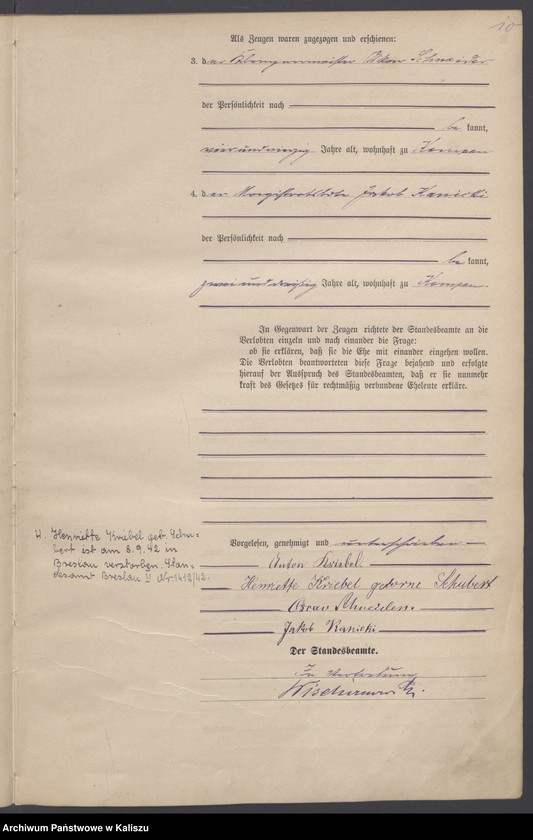 10
Als Zeugen waren zugezogen und erschienen:
3. der Klempnermeister Oskar Schneider
der Persönlichkeit nach
be kannt,
vierundvierzig Jahre alt, wohnhaft zu Kempen
4. der Magistratsbote Jakob Kanicki
der Persönlichkeit nach
be kannt,
zweiunddreißig Jahre alt, wohnhaft zu Kempen.
In Gegenwart der Zeugen richtete der Standesbeamte an die
Verlobten einzeln und nach einander die Frage:
ob sie erklären, daß sie die Ehe mit einander eingehen wollen.
Die Verlobten beantworteten diese Frage bejahend und erfolgte
hierauf der Ausspruch des Standesbeamten, daß er sie nunmehr
kraft des Gesetzes für rechtmäßig verbundene Eheleute erkläre.
H. Henriette Kriebel geb. Schu-
bert ist am 8.9.42 in
Breslau verstorben. Stan-
desamt Breslau II Nr 1412/42.
Vorgelesen, genehmigt und unterschrieben
Anton Kriebel.
Henriette Kriebel geborne Schubert
Oscar Schneider.
Jakob Kanicki
Der Standesbeamte.
In Vertretung
Archiwum Państwowe w Kaliszu